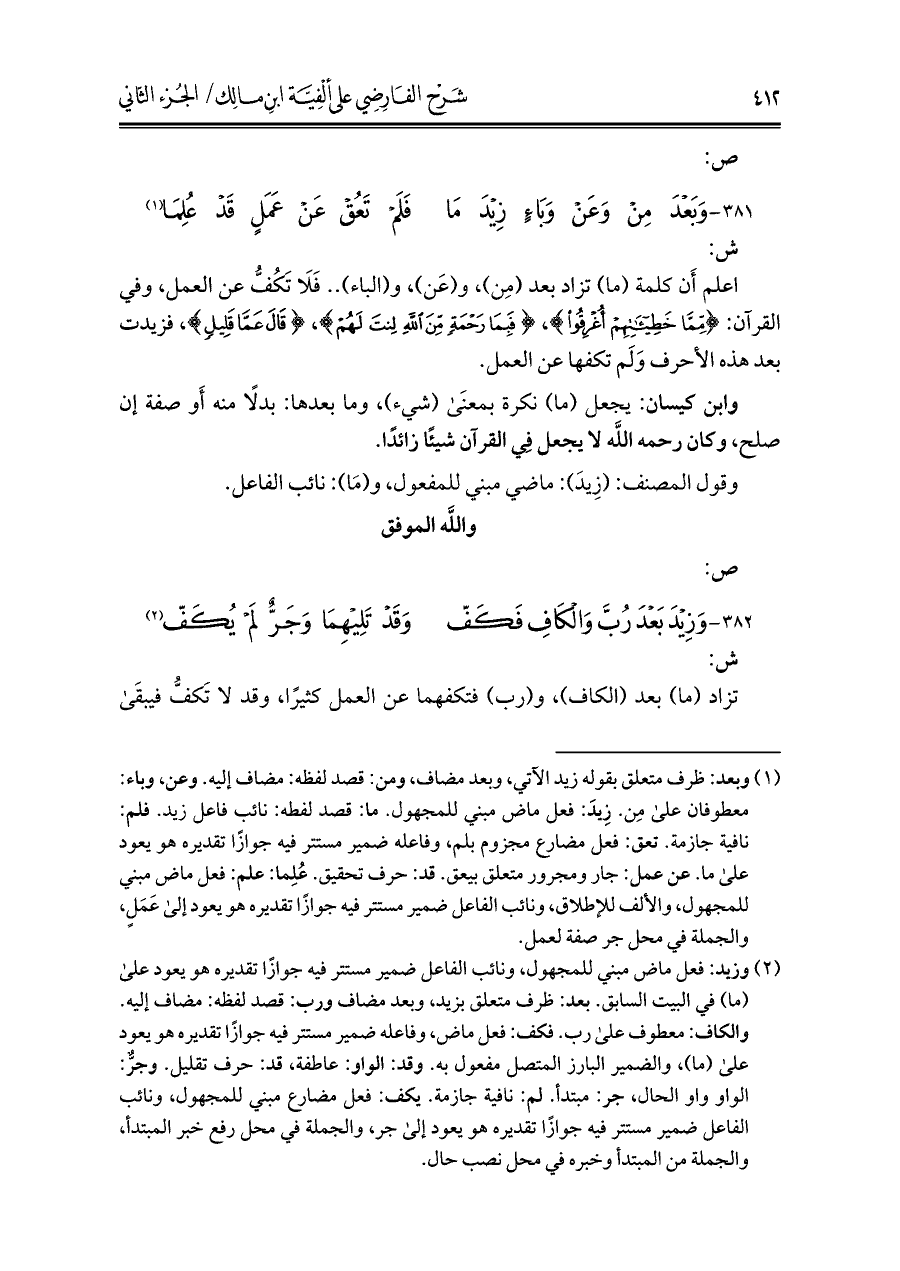 ٤١٢ شَرْح الفَارِضِي على ألْفِيَّة ابنِ مالِك/ الجُزء الثاني
ص:
٣٨١-وَبَعْدَ مِنْ وَعَنْ وَبَاءٍ زِيْدَ مَا فَلَمْ تَعُقْ عَنْ عَمَلٍ قَدْ عُلِمَا(١)
ش:
اعلم أَن كلمة (ما) تزاد بعد (مِن)، و(عَن)، و(الباء).. فَلَا تَكُفُّ عن العمل، وفي
القرآن: ﴿مِّمَّا خَطِيٓـَٰٔتِهِمْ أُغْرِقُواْ﴾، ﴿فَبِمَا رَحْمَةٍ مِّنَ ٱللَّهِ لِنتَ لَهُمْ﴾، ﴿قَالَ عَمَّا قَلِيلٍ﴾، فزيدت
بعد هذه الأحرف وَلَم تكفها عن العمل.
وابن كيسان: يجعل (ما) نكرة بمعنَىٰ (شيء)، وما بعدها: بدلًا منه أَو صفة إن
صلح، وكان رحمه اللَّه لا يجعل فِي القرآن شيئًا زائدًا.
وقول المصنف: (زِيدَ): ماضي مبني للمفعول، و(مَا): نائب الفاعل.
واللَّه الموفق
ص:
٣٨٢-وَزِيْدَ بَعْدَ رُبَّ وَالْكَافِ فَكَفّ وَقَدْ تَلِيْهِمَا وَجَرٌّ لَمْ يُكَفّ(٢)
ش:
تزاد (ما) بعد (الكاف)، و(رب) فتكفهما عن العمل كثيرًا، وقد لا تَكفُّ فيبقَىٰ
(١) وبعد: ظرف متعلق بقوله زيد الآتي، وبعد مضاف، ومن: قصد لفظه: مضاف إليه. وعن، وباء:
معطوفان علىٰ مِن. زِيدَ: فعل ماض مبني للمجهول. ما: قصد لفطه: نائب فاعل زيد. فلم:
نافية جازمة. تعق: فعل مضارع مجزوم بلم، وفاعله ضمير مستتر فيه جوازًا تقديره هو يعود
علىٰ ما. عن عمل: جار ومجرور متعلق بيعق. قد: حرف تحقيق. عُلِما: علم: فعل ماض مبني
للمجهول، والألف للإطلاق، ونائب الفاعل ضمير مستتر فيه جوازًا تقديره هو يعود إلىٰ عَمَلٍ،
والجملة في محل جر صفة لعمل.
(٢) وزيد: فعل ماض مبني للمجهول، ونائب الفاعل ضمير مستتر فيه جوازًا تقديره هو يعود علىٰ
(ما) في البيت السابق. بعد: ظرف متعلق بزيد، وبعد مضاف ورب: قصد لفظه: مضاف إليه.
والكاف: معطوف علىٰ رب. فكف: فعل ماض، وفاعله ضمير مستتر فيه جوازًا تقديره هو يعود
علىٰ (ما)، والضمير البارز المتصل مفعول به. وقد: الواو: عاطفة، قد: حرف تقليل. وجرٌّ:
الواو واو الحال، جر: مبتدأ. لم: نافية جازمة. يكف: فعل مضارع مبني للمجهول، ونائب
الفاعل ضمير مستتر فيه جوازًا تقديره هو يعود إلىٰ جر، والجملة في محل رفع خبر المبتدأ،
والجملة من المبتدأ وخبره في محل نصب حال.